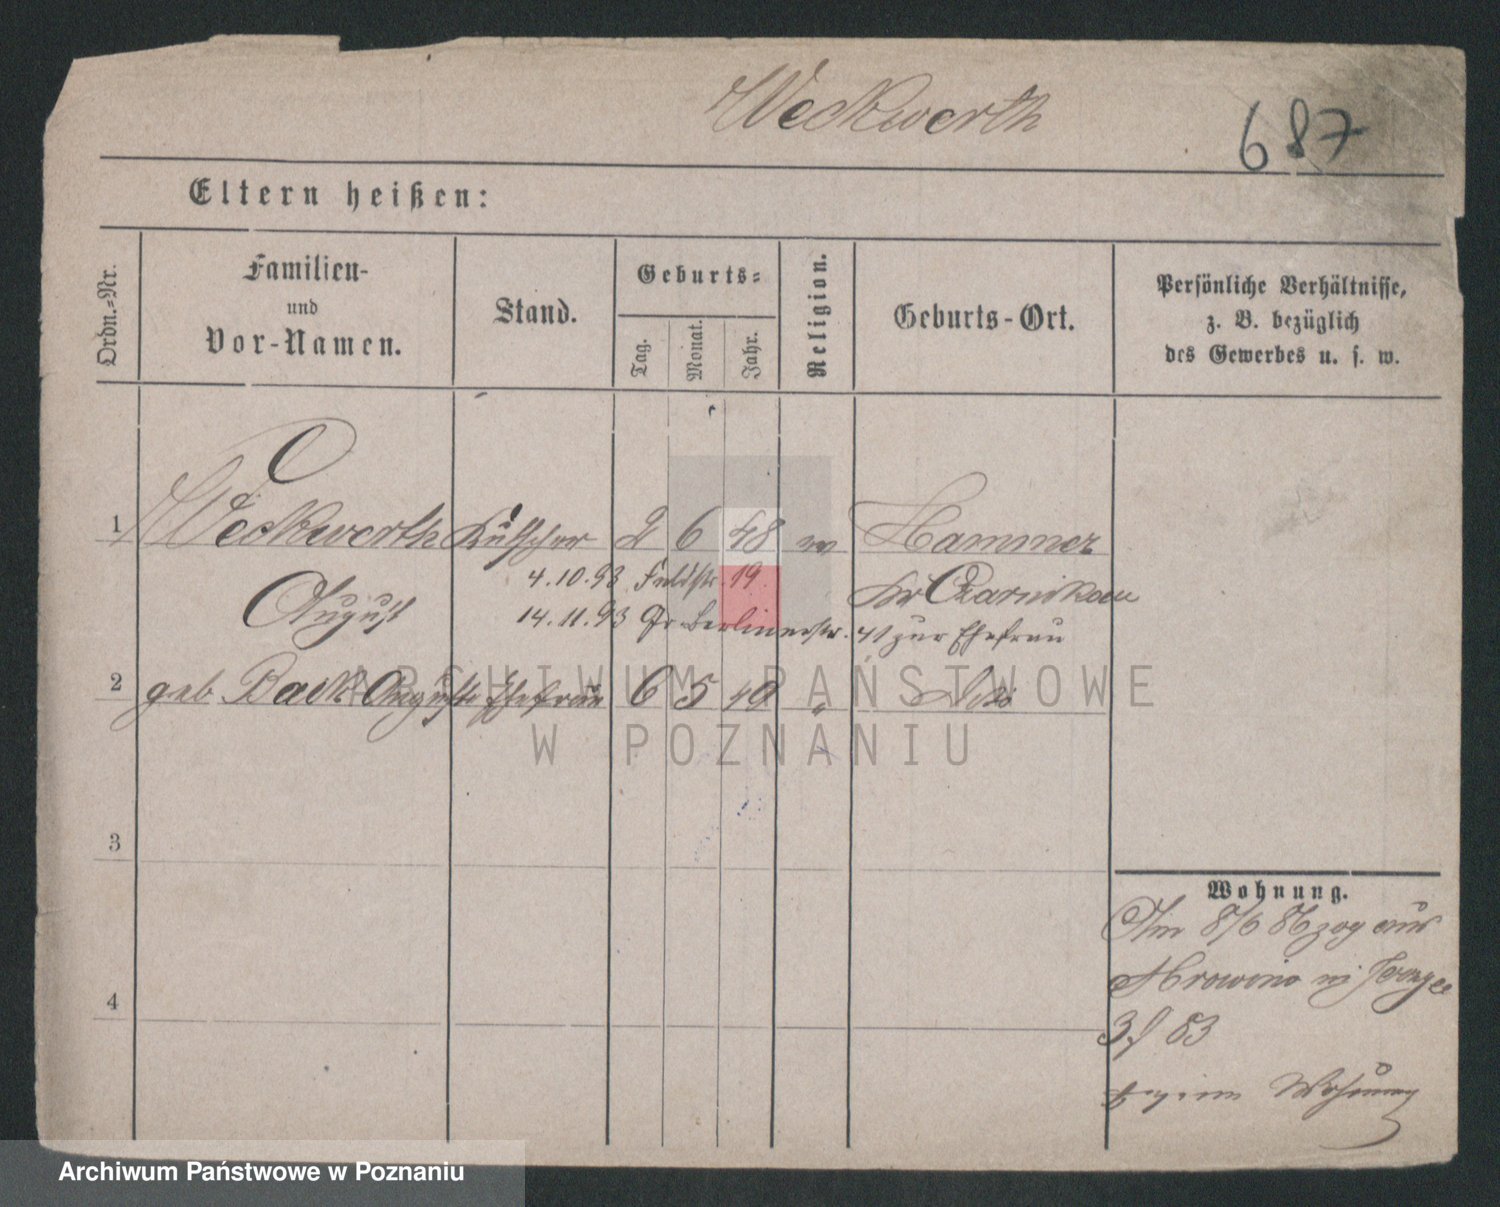 Weckwerth
687
Eltern heißen:
Ordn.-Nr.
Familien-
und
Vor-Namen.
Stand.
Geburts-
Tag.
Monat.
Jahr.
Religion.
Geburts-Ort.
Persönliche Verhältnisse,
z. B. bezüglich
des Gewerbes u. s. w.
1 Weckwerth Kutscher 2 6 48 Hammer
4.10.93 Feldstr. 19.
August Kr Czarnikau
14.11.93 Gr Berlinerstr. 41 zur Ehefrau
2 geb Back Auguste Ehefrau 6 5 40 " Do
3
4
Wohnung.
Am 8/6 86 zog aus
3/ 83
Wohnung
ARCHIWUM PAŃSTWOWE
W POZNANIU
Archiwum Państwowe w Poznaniu